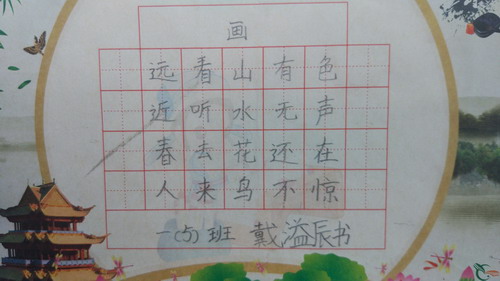 画
远看山有色
近听水无声
春去花还在
人来鸟不惊
一(5)班 戴溢辰书